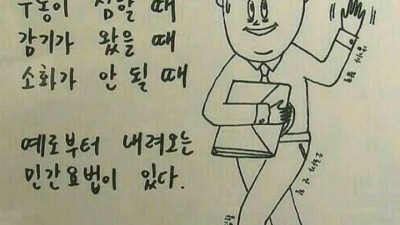 심할 때
감기가 왔을 때
소화가 안 될 때
예로부터 내려오는
민간요법이 있다.